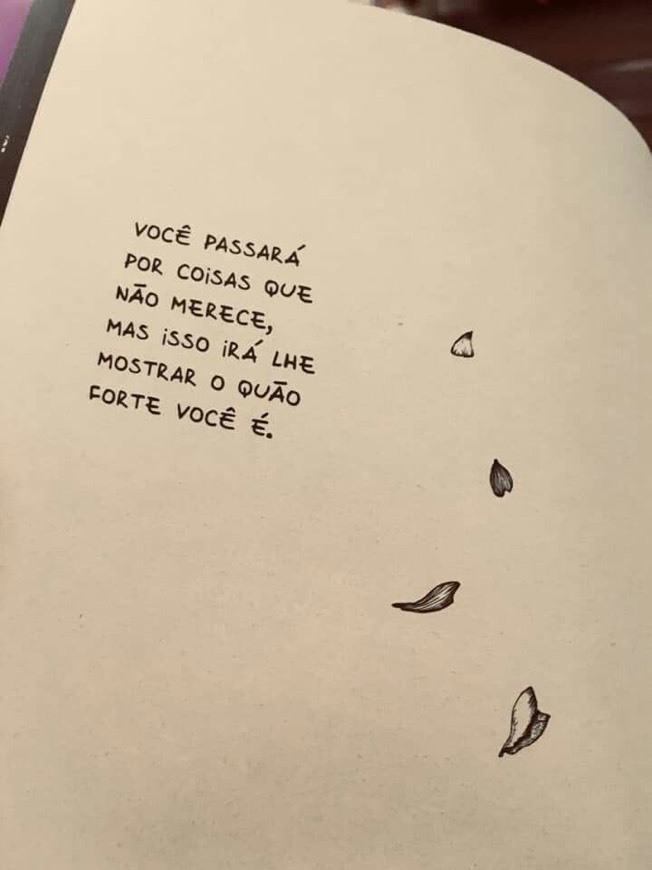 VOCÊ PASSARÁ
POR COiSAS QUE
NÃO MERECE,
MAS iSSO iRÁ LHE
MOSTRAR O QUÃO
FORTE VOCÊ É.